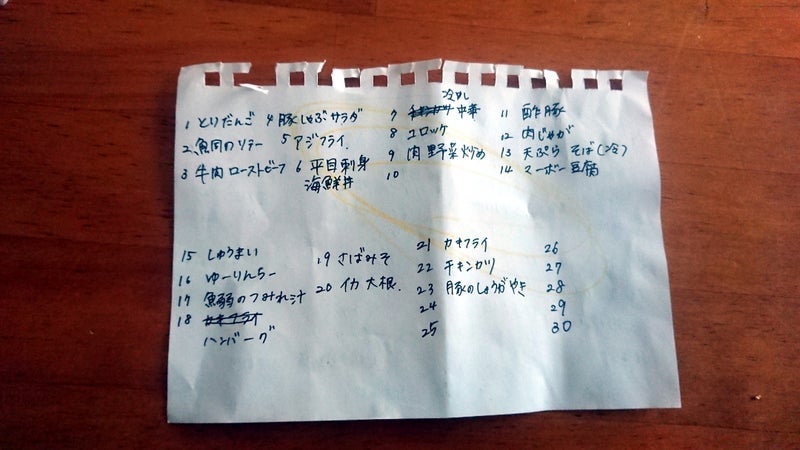 1 とりだんご
2 魚同のソテー
3 牛肉ローストビーフ
4 豚しゃぶサラダ
5 アジフライ
6 平目刺身
海鮮丼
冷やし
7 チキンカツ 中華
8 コロッケ
9 肉野菜炒め
10
11 酢豚
12 肉じゃが
13 天ぷらそば(冷)
14 マーボー豆腐
15 しゅうまい
16 ゆーりんちー
17 魚弱のつみれ汁
18 カキフライ
ハンバーグ
19 さばみそ
20 イカ大根.
21 カキフライ
22 チキンカツ
23 豚のしょうがやき
24
25
26
27
28
29
30